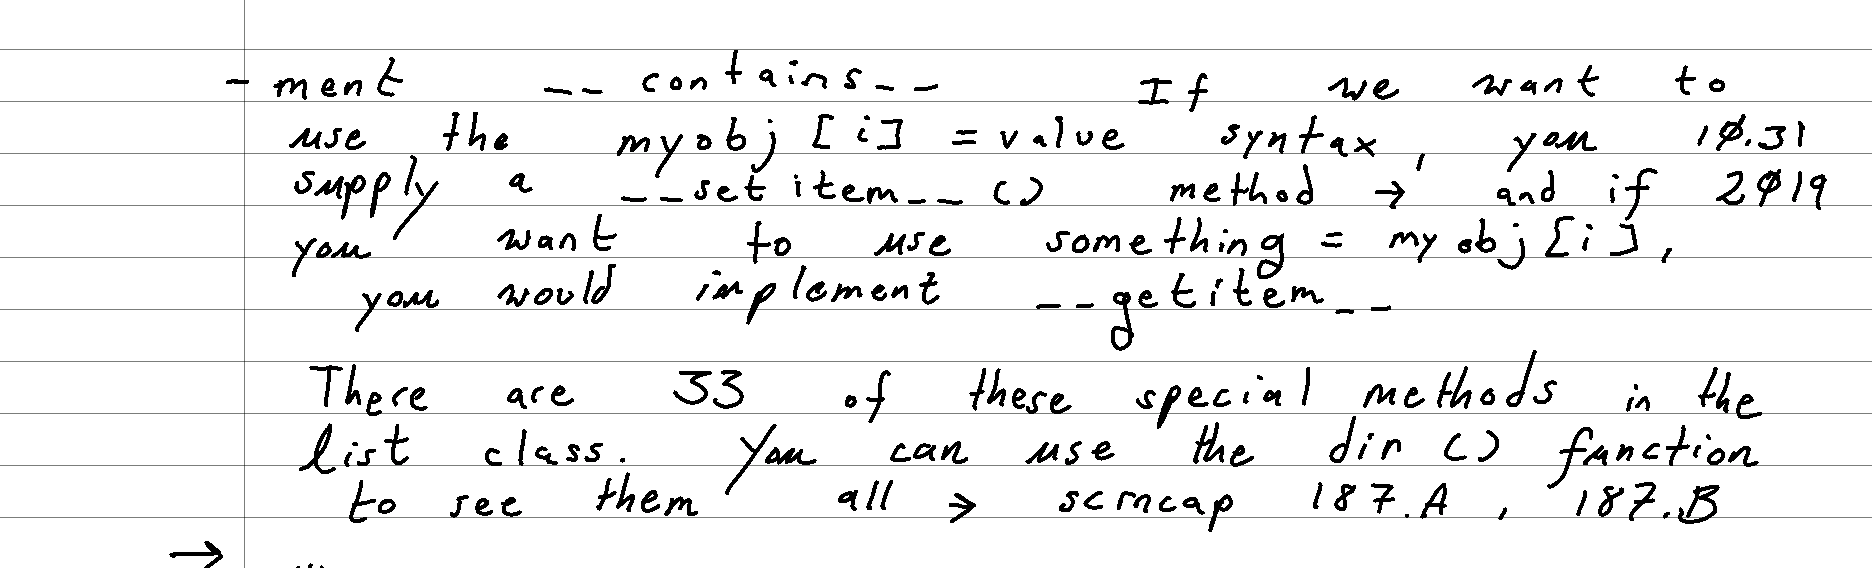 - ment __ contains __ If we want to
use the myobj [i] = value syntax, you 10.31
supply a __setitem__ () method → and if 2019
you want to use something = myobj[i],
you would implement __getitem__
There are 33 of these special methods in the
list class. You can use the dir () function
to see them all → scrncap 187.A, 187.B
→